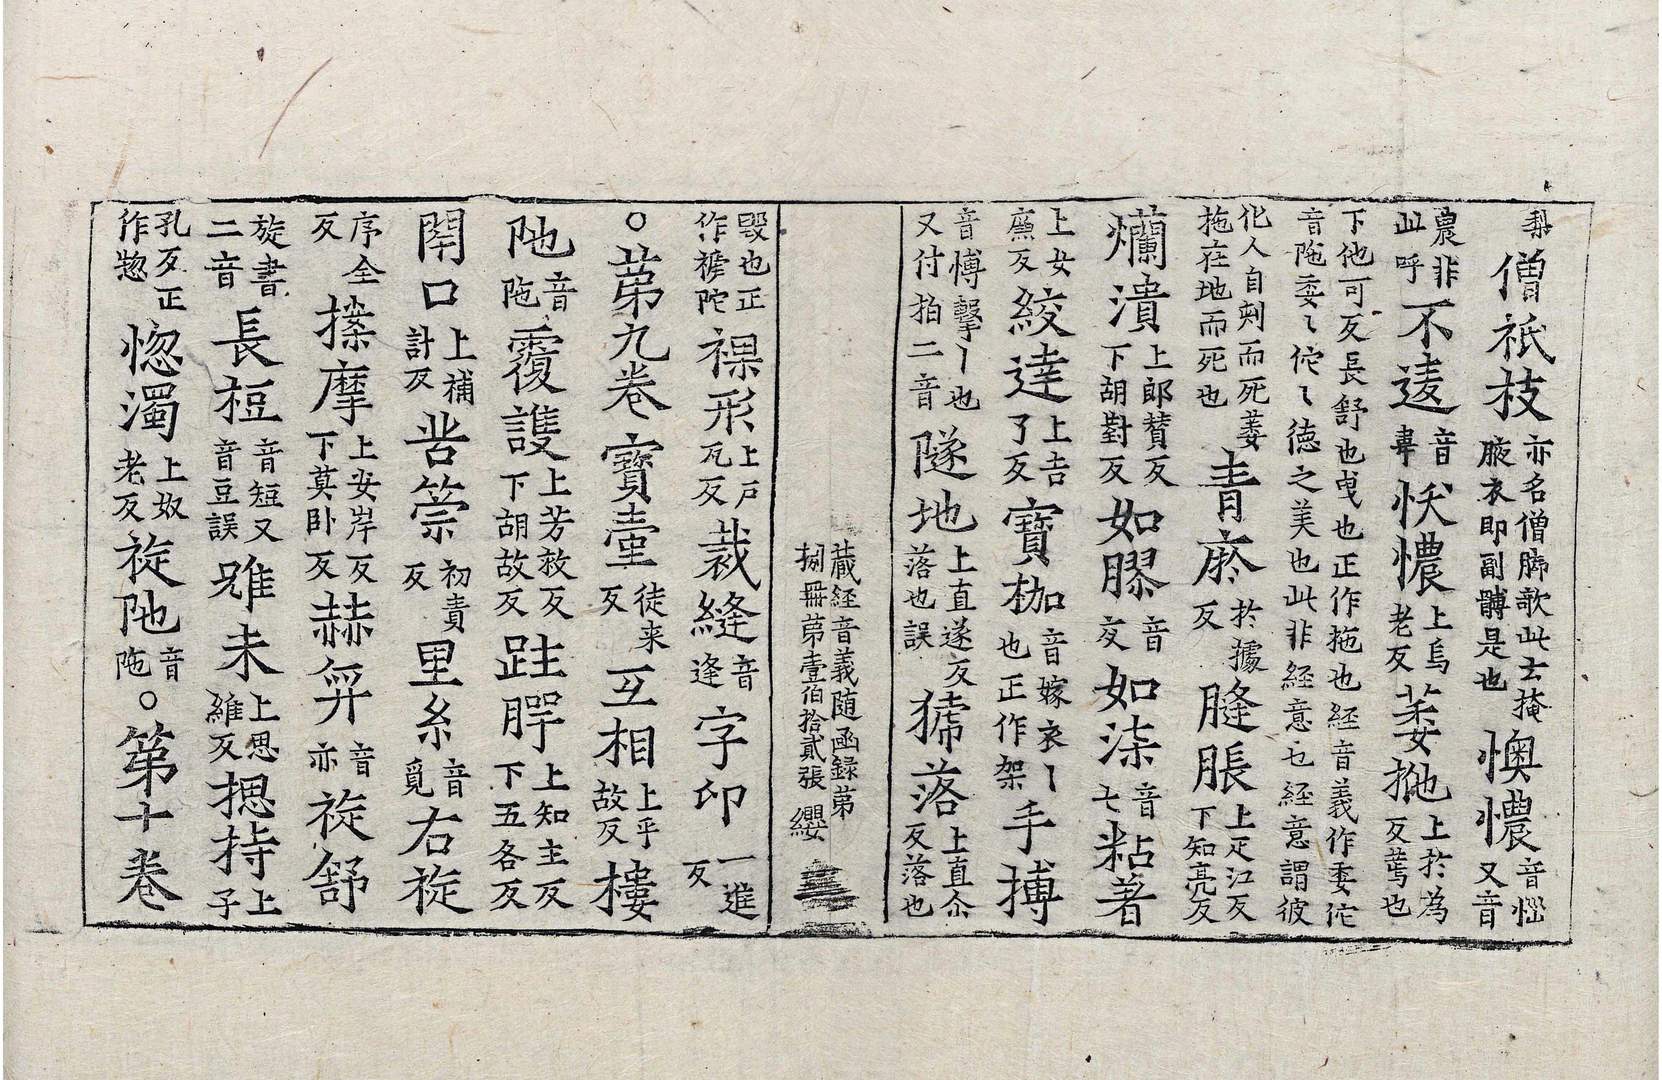 梨僧祇枝亦名僧脚㰤此云掩腋衣即副髆是也懊憹音𢙉又音
農非此呼不逶音事㤇憹上烏老反萎拖上於為反蔫也
下他可反長舒也曳也正作拖也経音義作委佗音陁委〻佗〻德之美也此非経意也経意謂彼
化人自刺而死萎拖在地而死也青瘀於據反膖脹上疋江反下知亮反
爛潰上郎賛反下胡對反如膠音交如柒音七粘著
上女廉反絞逹上古了反寶枷音嫁衣丨也正作架手搏
音博擊丨也又付拍二音隧地上直遂反落也誤㹷落上直尒反落也
蔵経音義随函録第捌冊第壹伯拾貳張 纓
毀也正作褫陀裸形上戶瓦反裁縫音逢字印一進反
○第九卷寶臺徒来反互相上乎故反樓
阤音陁覆護上芳救反下胡故反跓腭上知主反下五各反
閞口上補計反呰𥮾初責反里糸音覓右㳬
序全反搽摩上女岸反下莫卧反赫舜音亦㳬舒
㳬書二音長桓音短又音豆誤雖未上思維反揔持上子
孔反正作惣惚濁上奴老反㳬阤音陁○第十卷